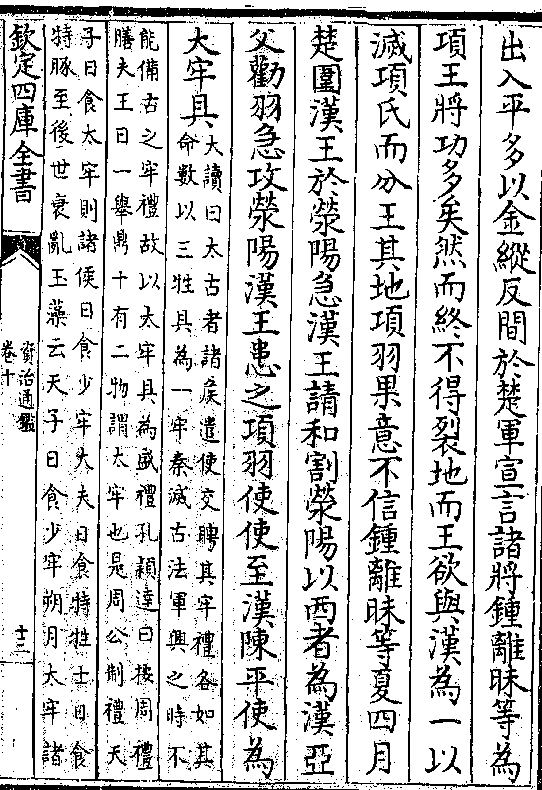 出入平多以金縱反間於楚軍宣言諸將鍾離昧等為
項王將功多矣然而終不得裂地而王欲與漢為一以
滅項氏而分王其地項羽果意不信鍾離昧等夏四月
楚圍漢王於滎陽急漢王請和割滎陽以西者為漢亞
父勸羽急攻滎陽漢王患之項羽使使至漢陳平使為
大牢具
大讀曰太古者諸侯遣使交聘其牢禮各如其
命數以三牲具為一牢秦滅古法軍興之時不
能備古之牢禮故以太牢具為盛禮孔穎達曰按周禮
膳夫王日一舉鼎十有二物謂太牢也是周公制禮天
子日食太牢則諸侯日食少牢大夫日食特牲士日食
特豚至後世衰亂玉藻云天子日食少牢朔月太牢諸
欽定四庫全書
資治通鑑
卷十
十三